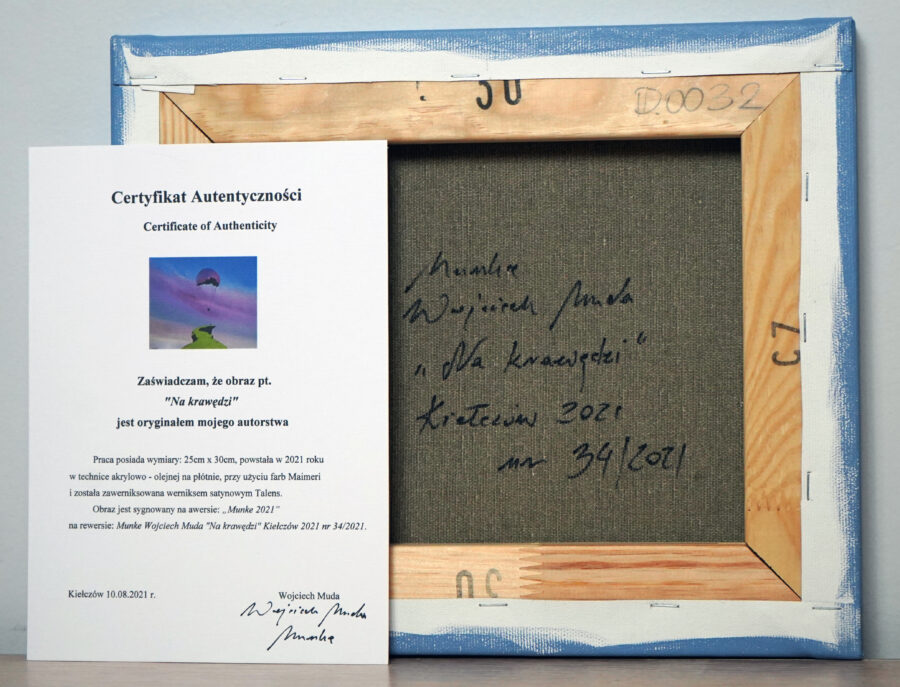 Certyfikat Autentyczności
Certificate of Authenticity
Zaświadczam, że obraz pt.
"Na krawędzi"
jest oryginałem mojego autorstwa
Praca posiada wymiary: 25cm x 30cm, powstała w 2021 roku
w technice akrylowo - olejnej na płótnie, przy użyciu farb Maimeri
i została zawerniksowana werniksem satynowym Talens.
Obraz jest sygnowany na awersie: „Munke 2021”
na rewersie: Munke Wojciech Muda "Na krawędzi" Kiełczów 2021 nr 34/2021.
Kiełczów 10.08.2021 r.
Wojciech Muda
Wojciech Muda
Munke
30
D.0032
Munke
Wojciech Muda
„Na krawędzi"
Kiełczów 2021
nr 34/2021
30